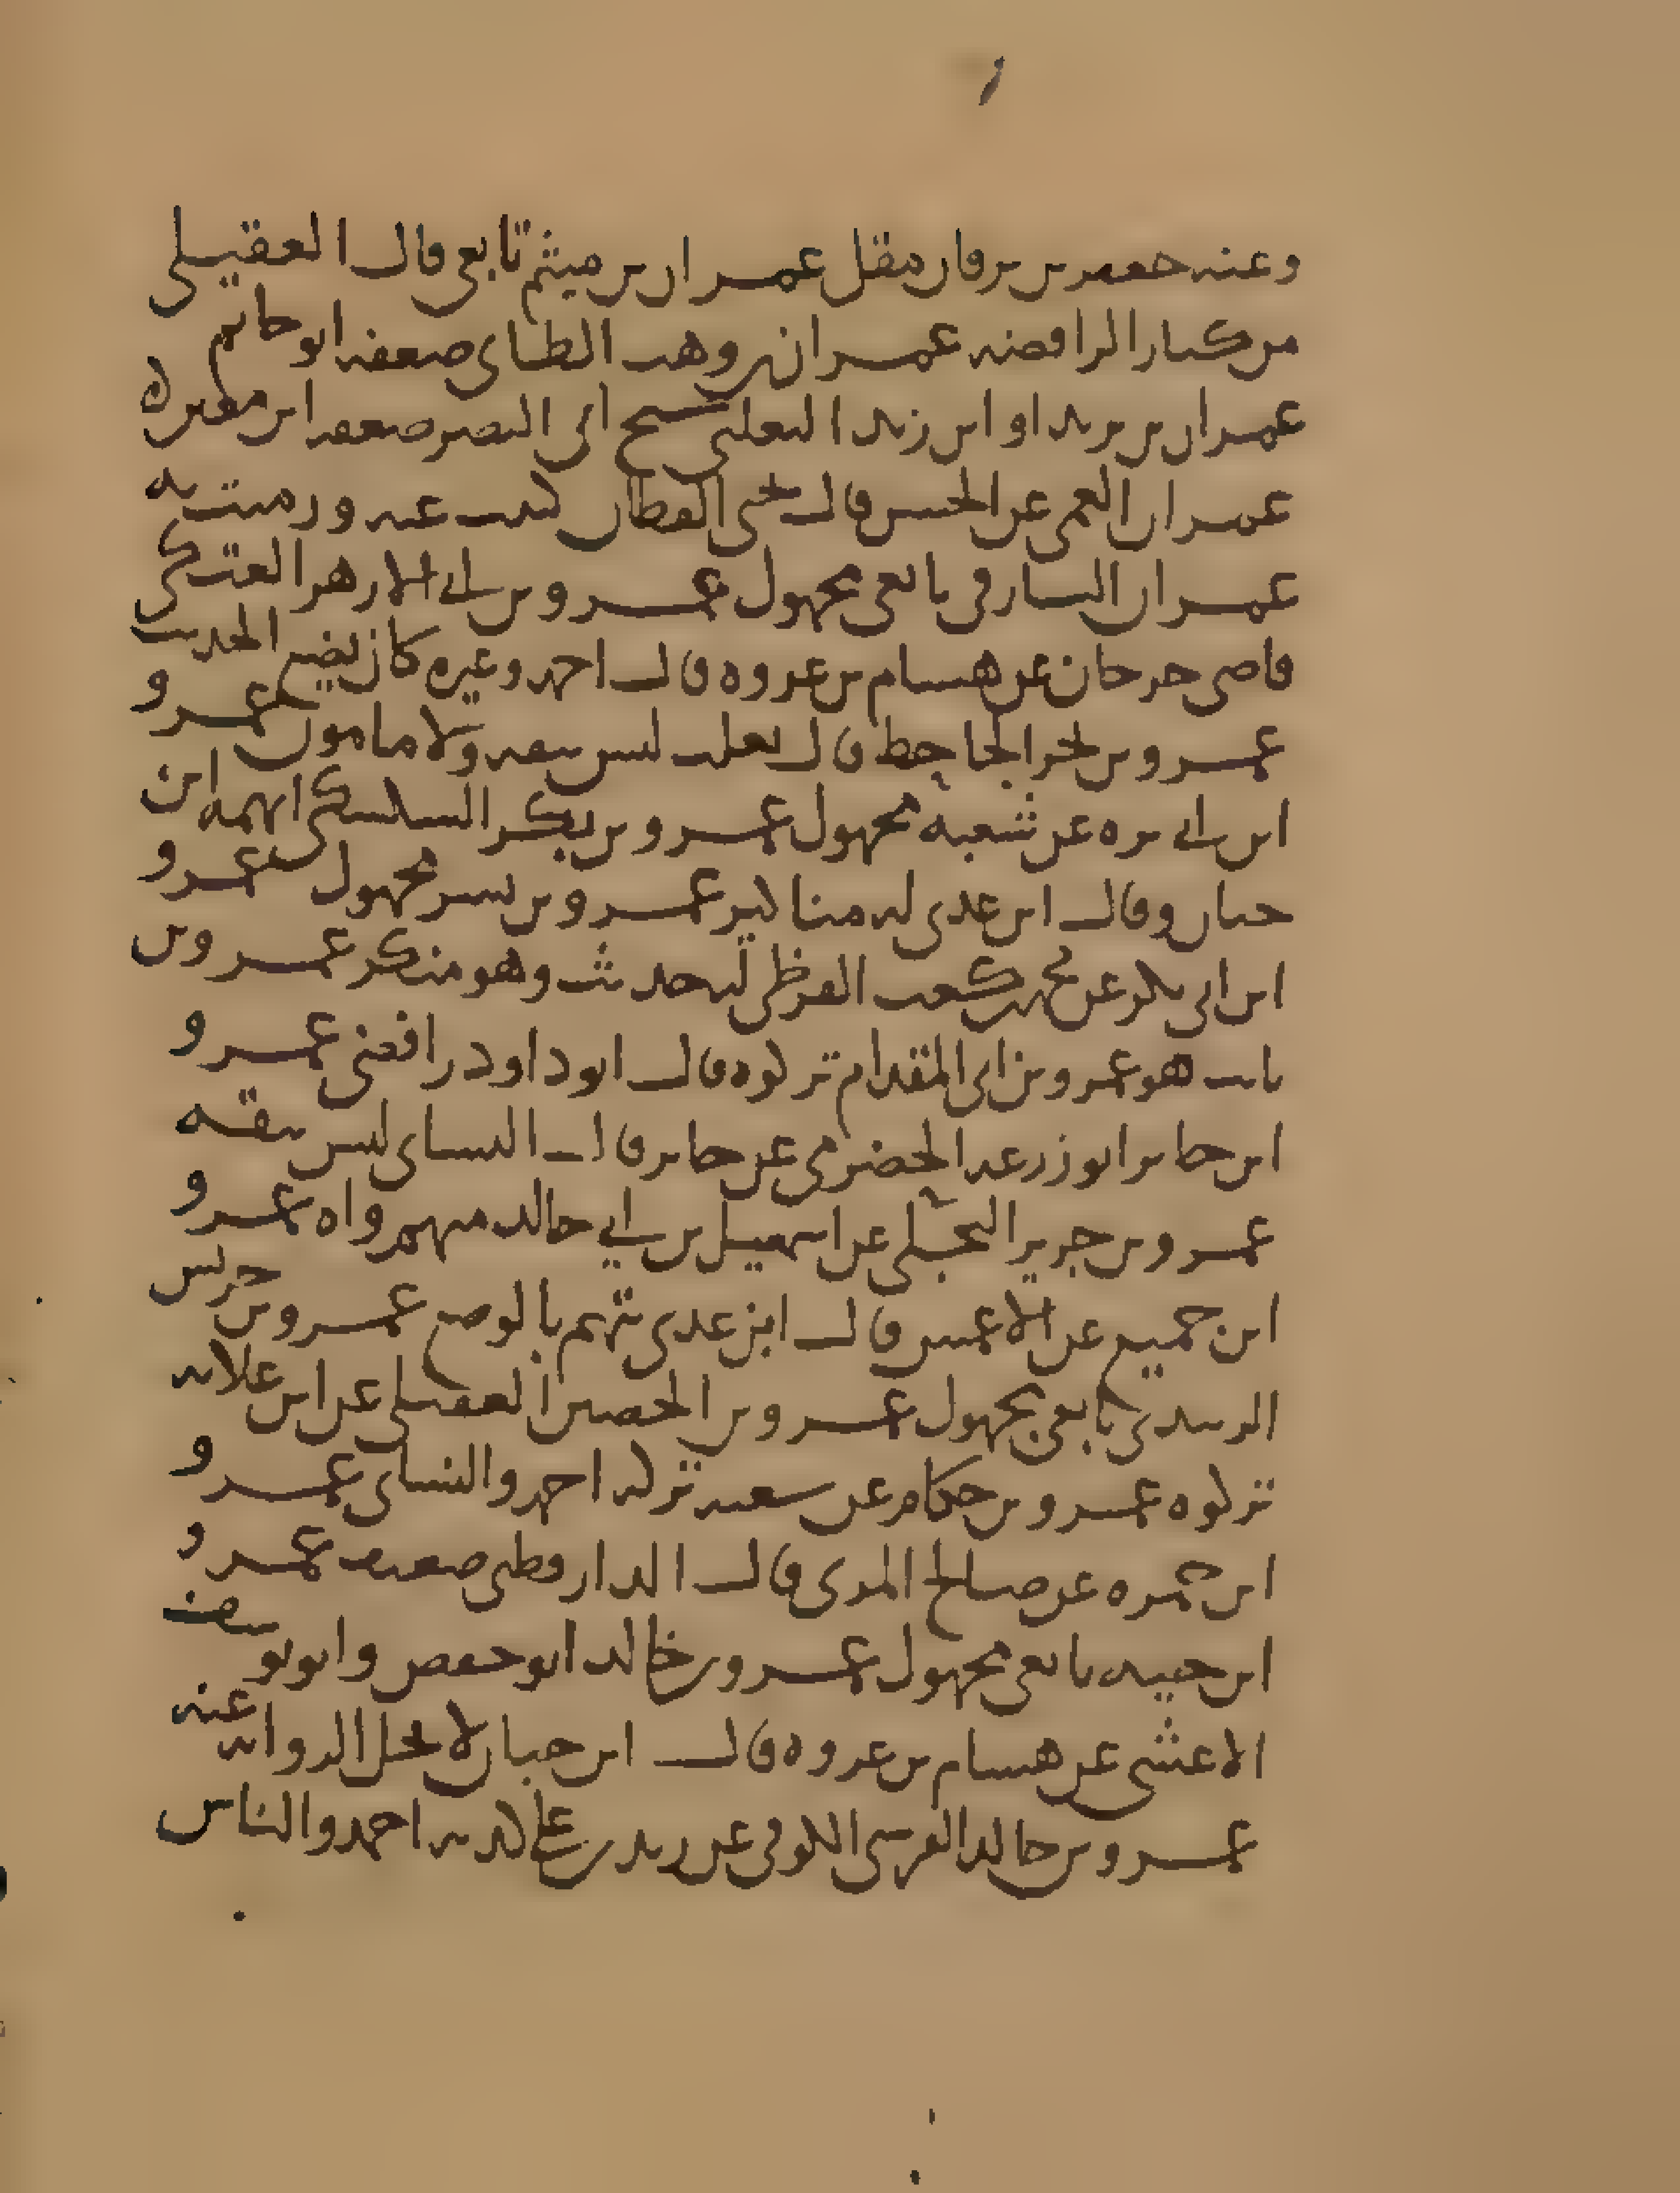 وعنه جعفر بن برقان مقل عمران بن ميثم تابعي قال العقيلي
من كبار الرافضة عمران بن وهب الطاي ضعفه ابو حاتم
عمران بن يزيد او ابن زيد التغلبي شيخ ابي النضر ضعفه ابن معين
عمران العمي عن الحسن قال يحيى القطان كتبت عنه ورميت به
عمران البارقي تابعي مجهول عمرو بن ابي الازهر العتكي
قاضي جرجان عن هشام بن عروة قال احمد وغيره كان يضع الحديث
عمرو بن بحر الجاحظ قال ثعلب ليس بثقة ولا مامون عمرو
ابن ابي بره عن شعبة مجهول عمرو بن بكر السكسكي اتهمه ابن
حبان وقال ابن عدي له مناكير عمرو بن بسر مجهول عمرو
ابن ابي بكر عن محمد بن كعب القرظي له حديث وهو منكر عمرو بن
ثابت هو عمرو بن ابي المقدام تركوه قال ابو داود رافضي عمرو
ابن جابر ابو زرعه الحضرمي عن جابر قال النساي ليس بثقة
عمرو بن جرير البجلي عن اسمعيل بن ابي خالد متهم واه عمرو
ابن جميع عن الاعمش قال ابن عدي يتهم بالوضع عمرو بن حريش
الزبيدي تابعي مجهول عمرو بن الحصين العقيلي عن ابن علاثه
تركوه عمرو بن حكام عن شعبة تركه احمد والنساي عمرو
ابن حمزه عن صالح المري قال الدارقطني ضعيف عمرو
ابن حبيه تابعي مجهول عمرو بن خالد ابو حفص وابو يوسف
الاعشى عن هشام بن عروه قال ابن حبان لا تحل الروايه عنه
عمرو بن خالد القرشي الكوفي عن زيد بن علي كذبه احمد والناس